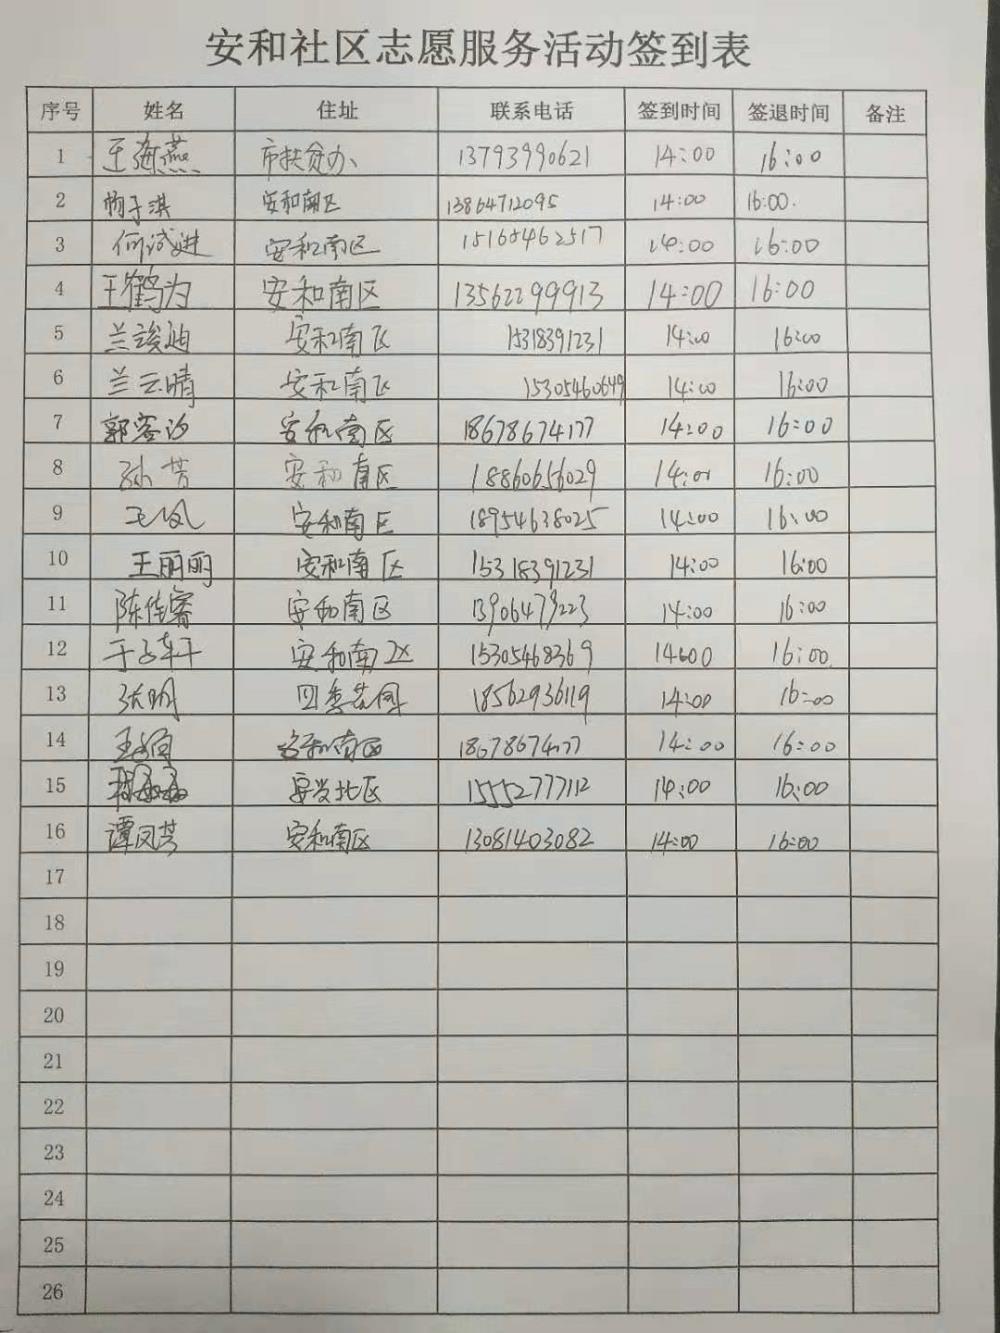 安和社区志愿服务活动签到表
序号 姓名 住址 联系电话 签到时间 签退时间 备注
1 王海燕 市扶贫办 13793990621 14:00 16:00
2 子淇 安和南区 13864712095 14:00 16:00.
3 何诚进 安和南区 15165462517 14:00 16:00
4 王鹤为 安和南区 13562299913 14:00 16:00
5 兰竣迪 安和南区 15318391231 14:00 16:00
6 兰云晴 安和南区 15305460649 14:00 16:00
7 郭容汐 安和南区 18678674177 14:00 16:00
8 孙芳 安和南区 18860656029 14:01 16:00
9 王凤 安和南区 18954638025 14:00 16:00
10 王丽丽 安和南区 15318391231 14:00 16:00
11 陈佳睿 安和南区 14:00 16:00
12 于子轩 安和南区 15305468369 14:00 16:00
13 张明 四季花园 18562936119 14:00 16:00
14 安和南区 14:00 16:00
15 安兴北区 15552777112 14:00 16:00
16 谭凤芳 安和南区 13081403082 14:00 16:00
17
18
19
20
21
22
23
24
25
26